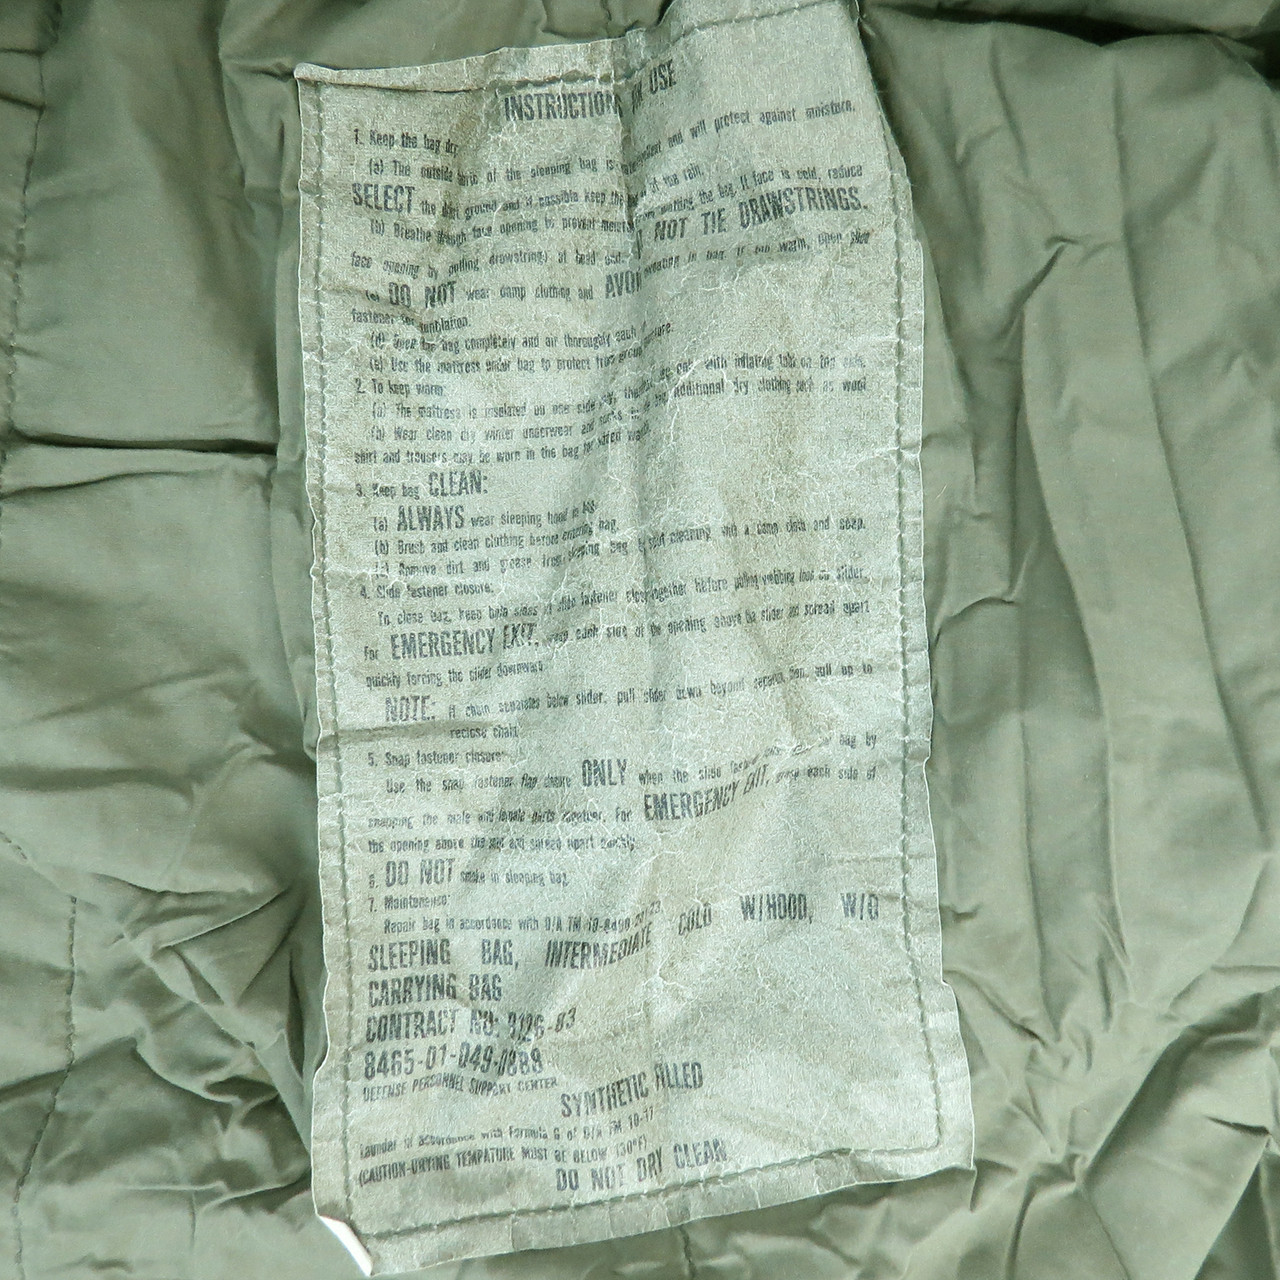 INSTRUCTIONS FOR USE
1. Keep the bag dry
(a) The outside fabric of the sleeping bag is water repellent and will protect against moisture.
SELECT the driest ground and if possible keep the bag out of the rain.
(b) Breathe through face opening to prevent moisture from wetting the bag. If face is cold, reduce
face opening by pulling drawstrings at head end. DO NOT TIE DRAWSTRINGS.
(c) DO NOT wear damp clothing and AVOID sweating in bag. If too warm, open slide
fastener for ventilation.
(d) Open the bag completely and air thoroughly each
(e) Use the mattress under bag to protect from ground moisture.
2. To keep warm:
(a) The mattress is insulated on one side only, with inflating tube on top side.
(b) Wear clean dry winter underwear and socks additional dry clothing such as wool
shirt and trousers may be worn in the bag for added warmth.
3. Keep bag CLEAN:
(a) ALWAYS wear sleeping hood in bag.
(b) Brush and clean clothing before entering bag.
(c) Remove dirt and grease from sleeping bag by spot cleaning with a damp cloth and soap.
4. Slide fastener closure.
To close bag, keep both sides of slide fastener close together before pulling webbing loop on slider.
For EMERGENCY EXIT, grasp each side of the opening above the slider and spread apart
quickly forcing the slider downward.
NOTE: If chain separates below slider, pull slider down beyond separation, pull up to
reclose chain.
5. Snap fastener closure:
Use the snap fastener flap closure ONLY when the slide bag by
snapping the male and female parts together. For EMERGENCY EXIT, grasp each side of
the opening above the and spread apart quickly.
6. DO NOT smoke in sleeping bag.
7. Maintenance:
Repair bag in accordance with D/A TM 10-8400-201-23.
SLEEPING BAG, INTERMEDIATE COLD W/HOOD, W/O
CARRYING BAG
CONTRACT NO: 3126-83
8465-01-049-0888
DEFENSE PERSONNEL SUPPORT CENTER
SYNTHETIC FILLED
Launder in accordance with Formula G of D/A FM 10-17
(CAUTION-DRYING TEMPATURE MUST BE BELOW 130°F)
DO NOT DRY CLEAN